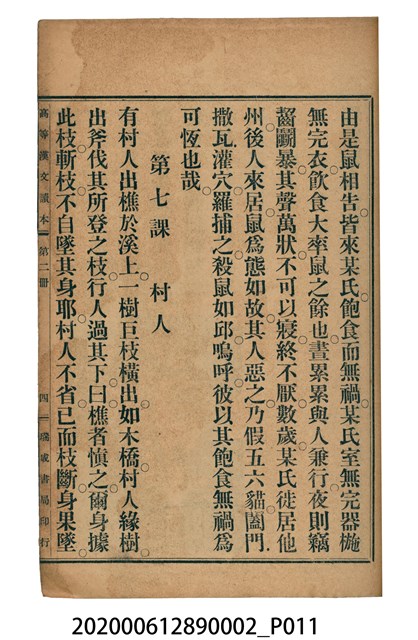 由是鼠相告皆來某氏飽食而無禍某氏室無完器椸
無完衣飲食大率鼠之餘也晝累累與人兼行夜則竊
齧鬬暴其聲萬狀不可以寢終不厭數歲某氏徙居他
州後人來居鼠爲態如故其人惡之乃假五六貓闔門
撒瓦灌穴羅捕之殺鼠如邱嗚呼彼以其飽食無禍爲
可恆也哉
第七課 村人
有村人出樵於溪上一樹巨枝橫出如木橋村人緣樹
出斧伐其所登之枝行人過其下曰樵者愼之爾身據
此枝斬枝不自墜其身耶村人不省已而枝斷身果墜
高等漢文讀本 第二冊 四 璞成書局印行
202000612890002_P011